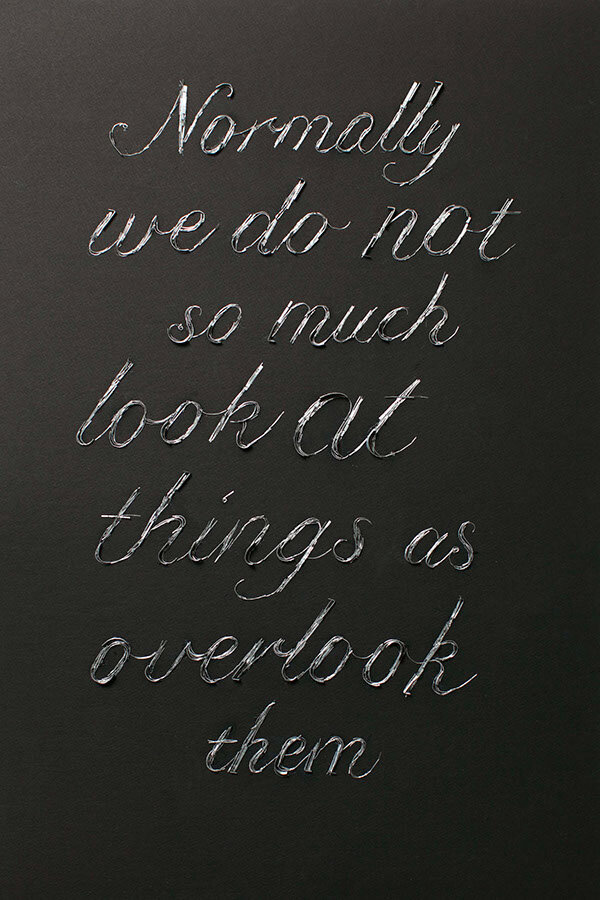 Normally
we do not
so much
look at
things as
overlook
them